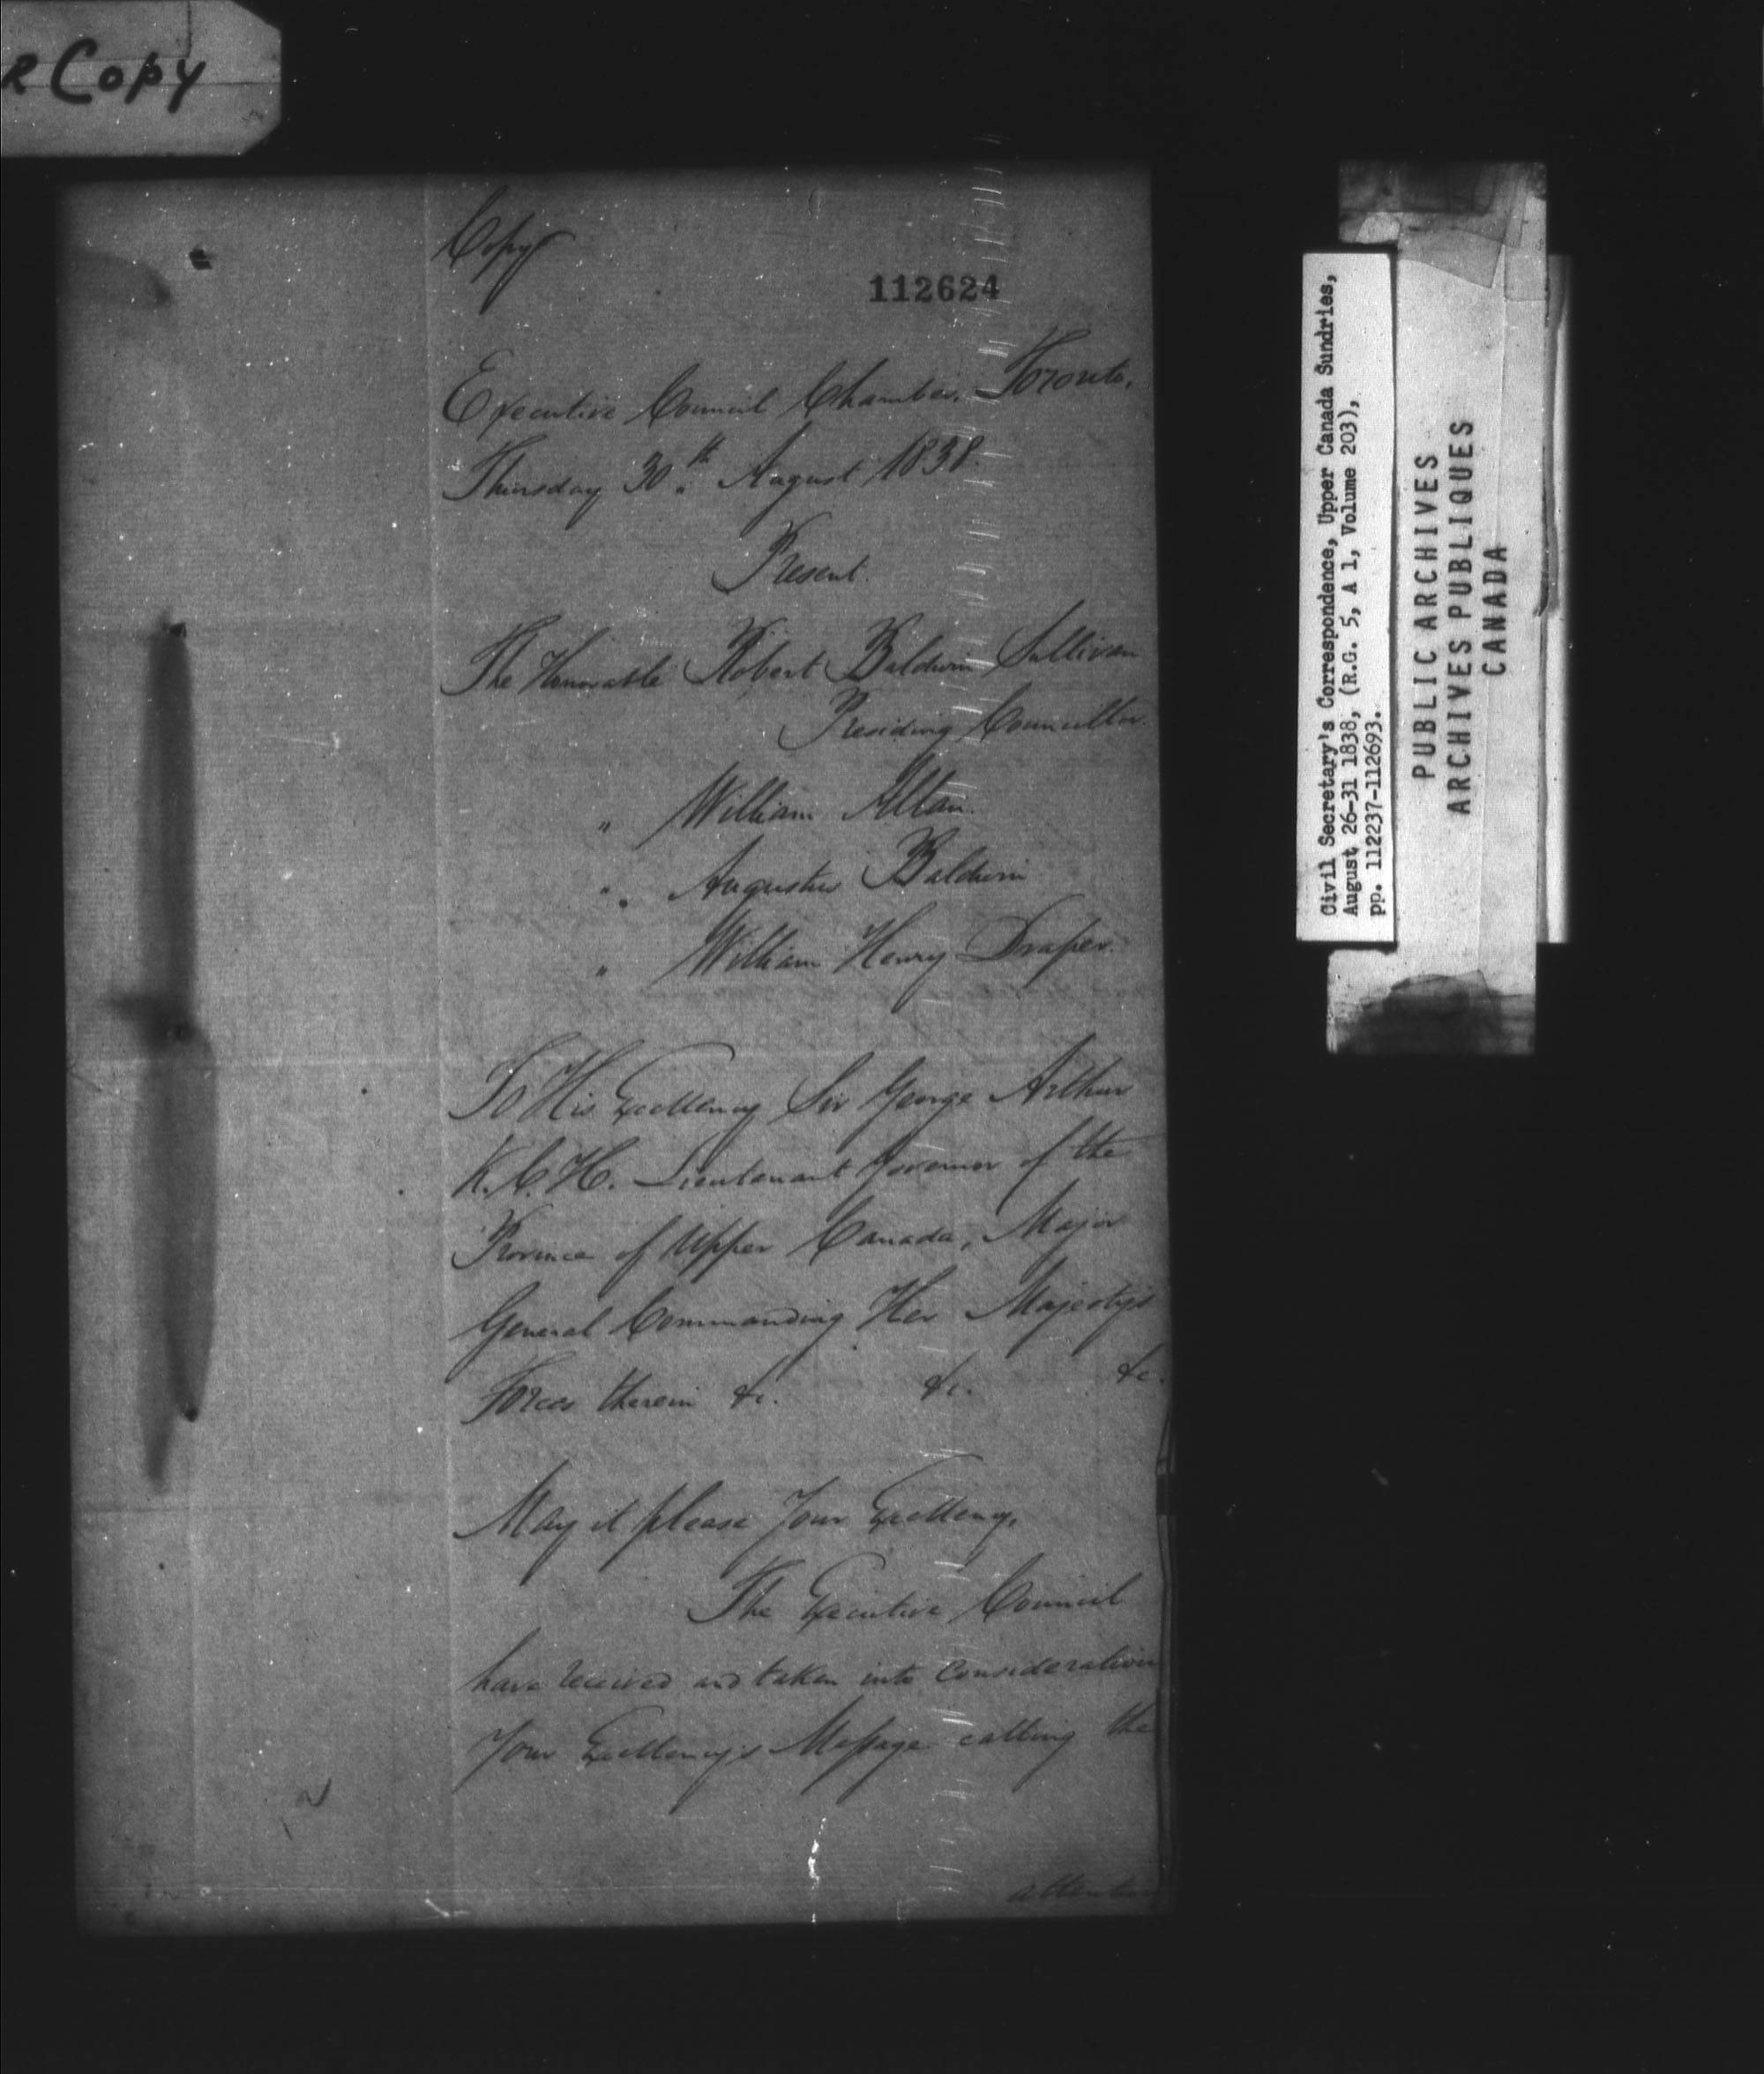 R Copy
Copy
112624
Executive Council Chamber, Toronto,
Thursday 30th August 1838.
Present.
The Honorable Robert Baldwin Sullivan
Presiding Councillor.
" William Allan.
" Augustus Baldwin
" William Henry Draper.
To His Excellency Sir George Arthur
K.C.H. Lieutenant Governor of the
Province of Upper Canada, Major
General Commanding Her Majesty's
Forces therein &c. &c. &c.
May it please Your Excellency,
The Executive Council
have received and taken into Consideration
Your Excellency's Message calling the
attention
Civil Secretary's Correspondence, Upper Canada Sundries,
August 26-31 1838, (R.G. 5, A 1, Volume 203),
pp. 112237-112693.
PUBLIC ARCHIVES
ARCHIVES PUBLIQUES
CANADA